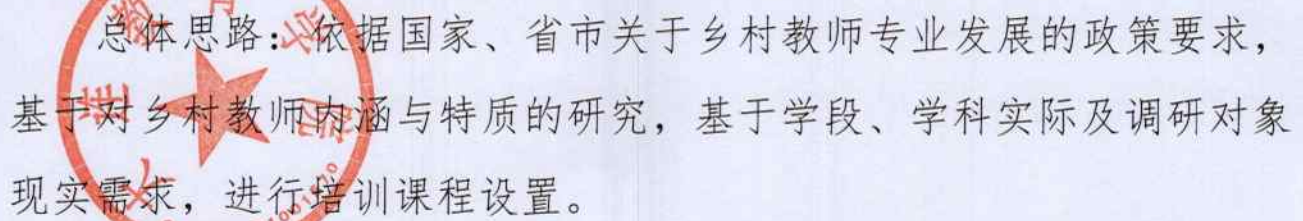 总体思路：依据国家、省市关于乡村教师专业发展的政策要求，
基于对乡村教师内涵与特质的研究，基于学段、学科实际及调研对象
现实需求，进行培训课程设置。